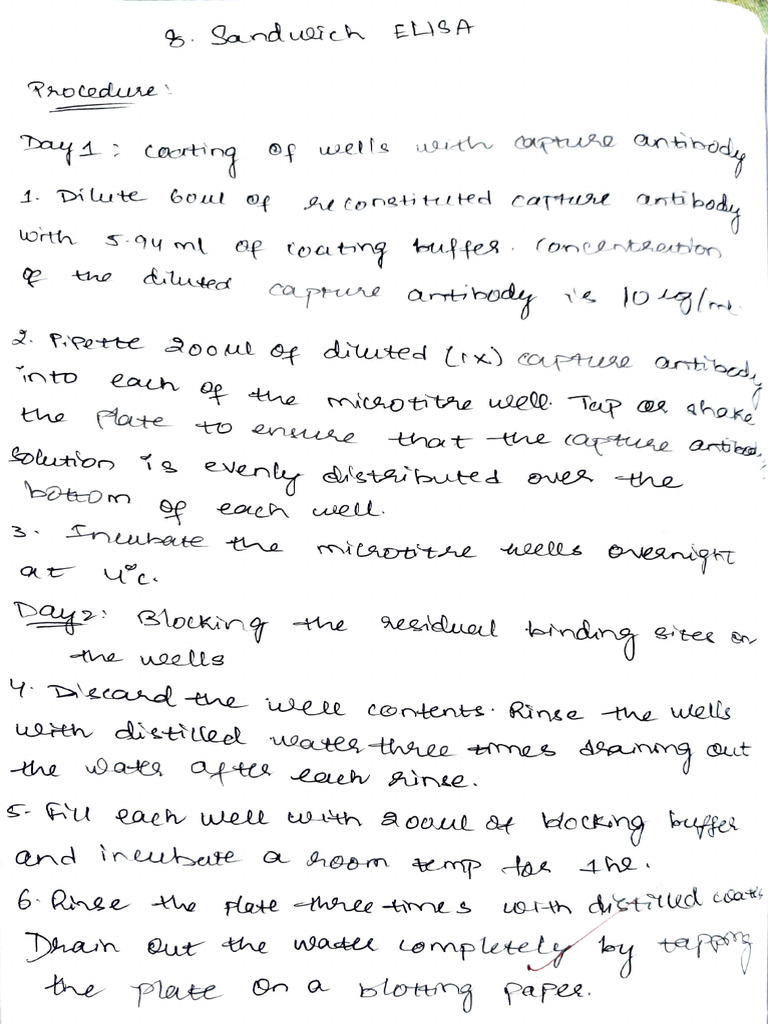 8. Sandwich ELISA
Procedure:
Day 1: coating of wells with capture antibody
1. Dilute 60ul of reconstituted capture antibody
with 5.94 ml of coating buffer. Concentration
of the diluted capture antibody is 10 ug/ml.
2. Pipette 200ul of diluted (1x) capture antibody
into each of the microtitre well. Tap or shake
the plate to ensure that the capture antibody
solution is evenly distributed over the
bottom of each well.
3. Incubate the microtitre wells overnight
at 4°c.
Day 2: Blocking the residual binding sites on
the wells
4. Discard the well contents. Rinse the wells
with distilled water three times draining out
the water after each rinse.
5. Fill each well with 200ul of blocking buffer
and incubate a room temp for 1hr.
6. Rinse the plate three times with distilled water
Drain out the water completely by tapping
the plate on a blotting paper.